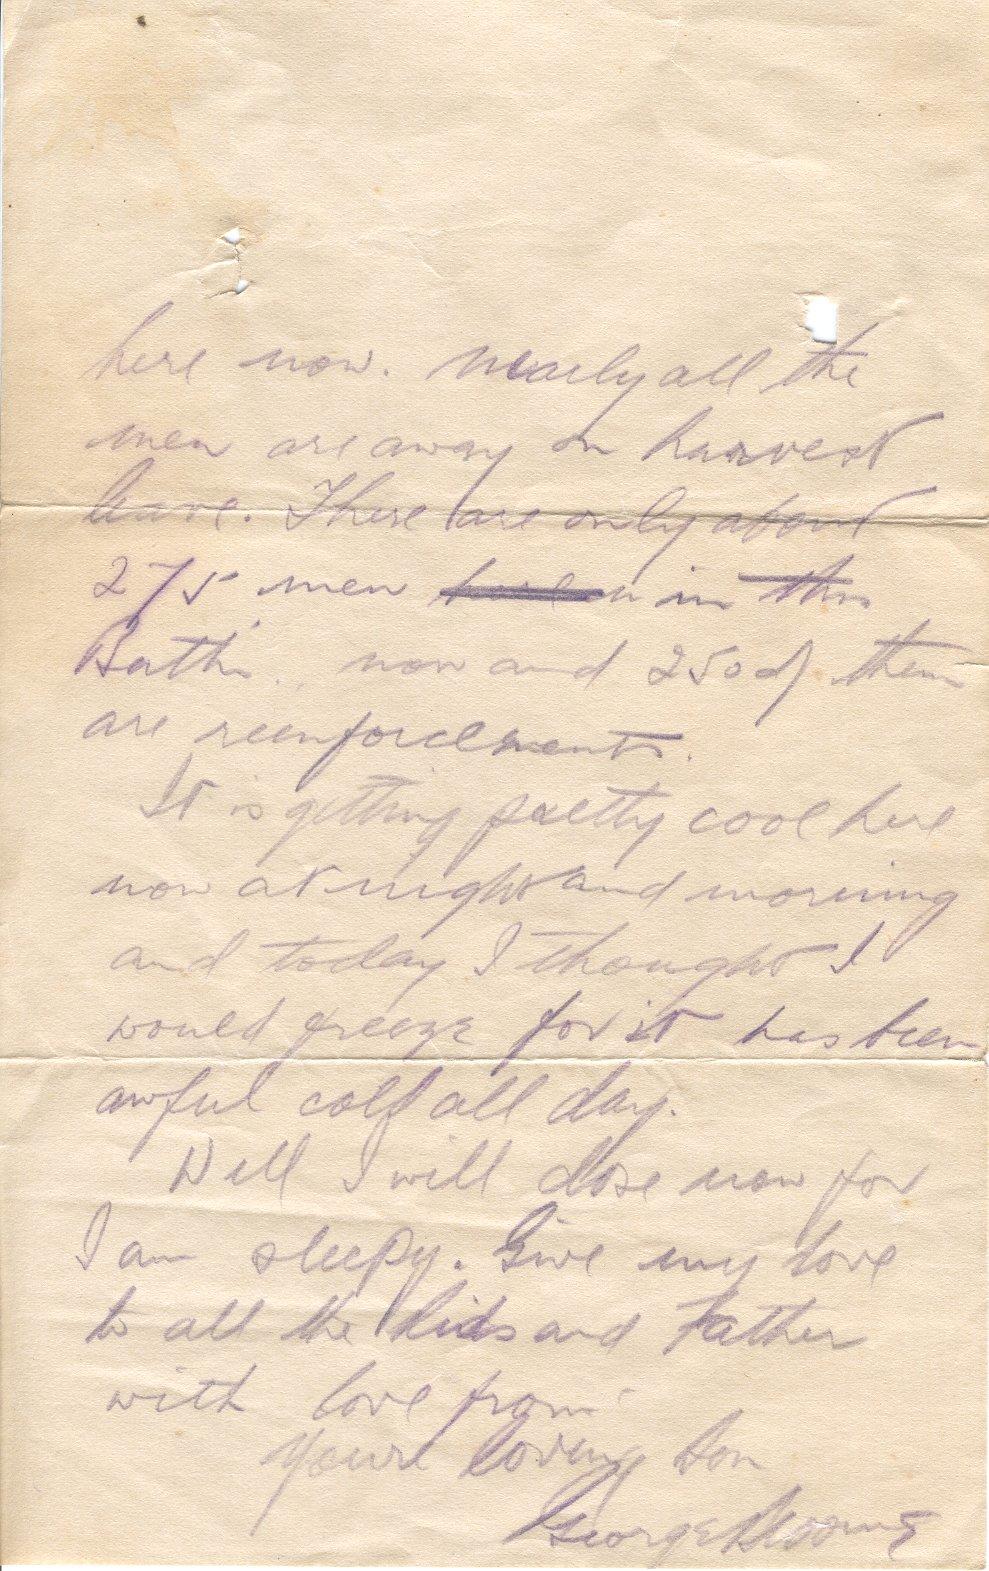 here now. Nearly all the
men are away on harvest
leave. There are only about
275 men in this
Bathn. now and 250 of them
are reenforcements.
It is getting pretty cool here
now at night and morning
and today I thought I
would freeze for it has been
awful cold all day.
Well I will close now for
I am sleepy. Give my love
to all the kids and Father
with love from
Your loving son
George